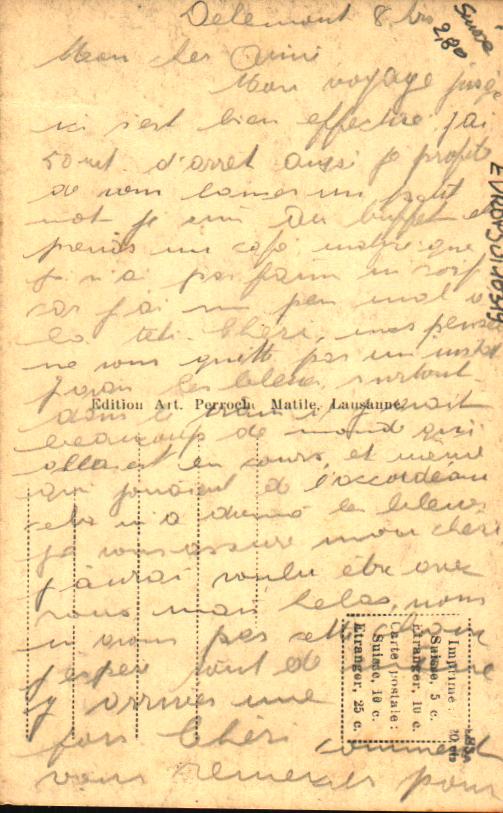 Delemont 8 hrs
Suisse
2,80
Mon cher Ami
Mon voyage jusqu
ici s'est bien effectué, j'ai
50 mt d'arret aussi je profite
de vous lancer un petit
mot je suis au buffet et
prends un café malgre que
je n'ai pas faim ni soif
car j'ai un peu mal a
la tete. Chéri, mes pensee
ne vous quitte pas un instant
j'avais les bleus surtout
Edition Art. Perrochet Matile, Lausanne
dans le train, y avait
beaucoup de monde qui
allaient en cours, et même
qui jouaient de l'accordeon
cela m'a donné les bleus
je vous assure mon cheri
j'aurai voulu être avec
vous, mais helas, nous
n'avons pas cette
j'espere tout de même
y arriver une
fois Chéri comment
vous remercier pour
Imprimé :
Suisse, 5 c.
Etranger, 10 c.
Carte postale :
Suisse, 10 c.
Etranger, 25 c.